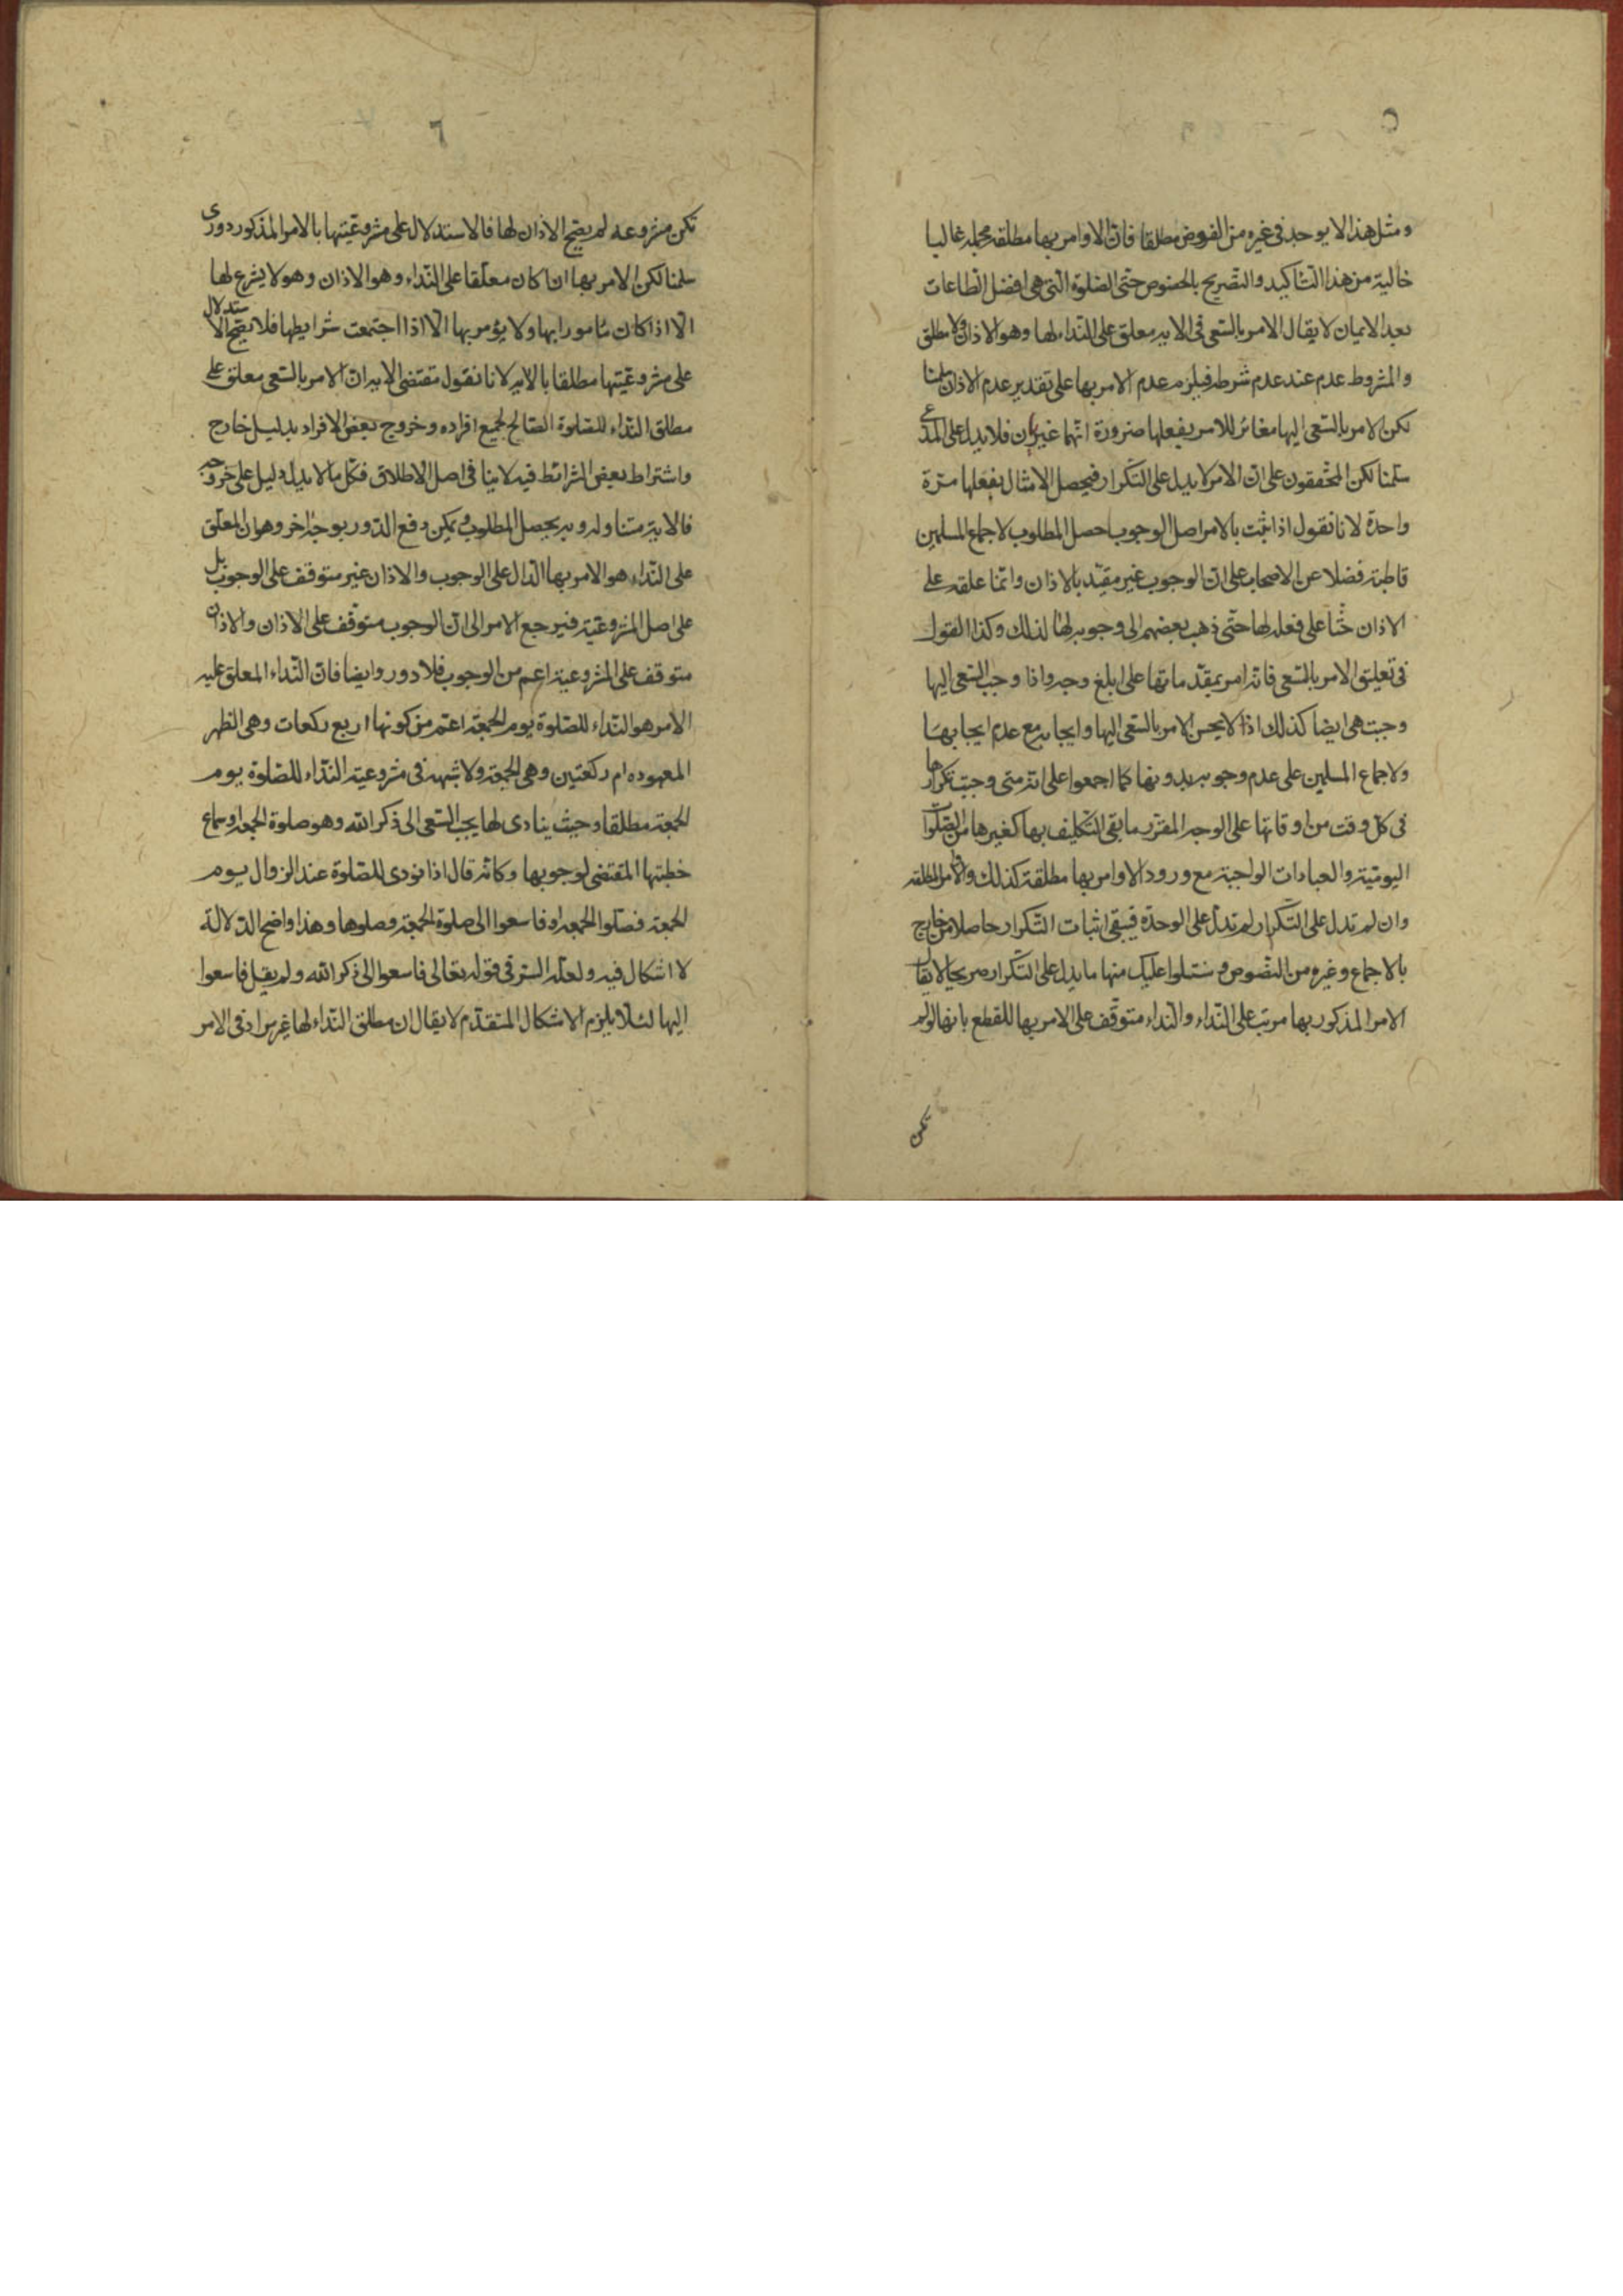 ٥
ومثل هذا لا يوجد فى غيره من الفروض مطلقا فان الاوامر بها مطلقه مجمله غالبا
خالية من هذا التاكيد والتصريح بالخصوص حتى الصلوة التى هى افضل الطاعات
بعد الايمان لا يقال الامر بالسعى فى الايه معلق على النداء لها وهو الاذان لا مطلق
والمشروط عدم عند عدم شرطه فيلزم عدم الامر بها على تقدير عدم الاذان سلمنا
لكن الامر بالسعى اليها مغائر للامر بفعلها ضرورة انهما غيران فلا يدل على المدعى
سلمنا لكن المحققون على ان الامر لا يدل على التكرار فيحصل الامتثال بفعلها مرة
واحدة لانا نقول اذا ثبت بالامر اصل الوجوب حصل المطلوب لاجماع المسلمين
قاطبة فضلا عن الاصحاب على ان الوجوب غير مقيد بالاذان وانما علقه على
الاذان حثا على فعله لها حتى ذهب بعضهم الى وجوبه لها لذلك وكذا القول
فى تعليق الامر بالسعى فانه امر بمقدماتها على ابلغ وجه واذا وجب السعى اليها
وجبت هى ايضا كذلك اذ لا يحسن الامر بالسعى اليها وايجابه مع عدم ايجابها
ولاجماع المسلمين على عدم وجوبه بدونها كما اجمعوا على انه متى وجبت تكرارها
فى كل وقت من اوقاتها على الوجه المقرر ما بقى التكليف بها كغيرها من الصلوات
اليومية والعبادات الواجبة مع ورود الاوامر بها مطلقة كذلك والاوامر المطلقه
وان لم تدل على التكرار لم تدل على الوحدة فيبقى اثبات التكرار حاصلا من خارج
بالاجماع وغيره من النصوص وسنتلوا عليك منها ما يدل على التكرار صريحا لا يقال
الامر المذكور بها مرتب على النداء والنداء متوقف على الامر بها للقطع بانها لو لم
تكن
٦
تكن مشروعه لم يصح الاذان لها فالاستدلال على مشروعيتها بالامر المذكور دورى
سلمنا لكن الامر بها ان كان معلقا على النداء وهو الاذان وهو لا يشرع لها
الا اذا كان مامورا بها ولا يؤمر بها الا اذا اجتمعت شرايطها فلا يصح الاستدلال
على مشروعيتها مطلقا بالآيه لانا نقول مقتضى الايه ان الامر بالسعى معلق على
مطلق النداء للصلوة الصالح لجميع افراده وخروج بعض الافراد بدليل خارج
واشتراط بعض الشرائط فيه لا ينافى اصل الاطلاق فكل ما لا يدل دليل على خروجه
فالاية متناوله وبه يحصل المطلوب ويمكن دفع الدور بوجه اخر وهو ان المعلق
على النداء هو الامر بها الدال على الوجوب والاذان غير متوقف على الوجوب بل
على اصل المشروعية فيرجع الامر الى ان الوجوب متوقف على الاذان والاذان
متوقف على المشروعية اعم من الوجوب فلا دور وايضا فان النداء المعلق عليه
الامر هو النداء للصلوة يوم الجمعة اعم من كونها اربع ركعات وهى الظهر
المعهوده ام ركعتين وهى الجمعة ولا شبهة فى مشروعية النداء للصلوة يوم
الجمعة مطلقا وحيث ينادى لها يجب السعى الى ذكر الله وهو صلوة الجمعه او سماع
خطبتها المقتضى لوجوبها وكانه قال اذا نودى للصلوة عند الزوال يوم
الجمعة فصلوا الجمعه او فاسعوا الى صلوة الجمعة وصلوها وهذا واضح الدلالة
لا اشكال فيه ولعله السر فى قوله تعالى فاسعوا الى ذكر الله ولم يقل فاسعوا
اليها لئلا يلزم الاشكال المتقدم لا يقال ان مطلق النداء لها غير مراد فى الامر